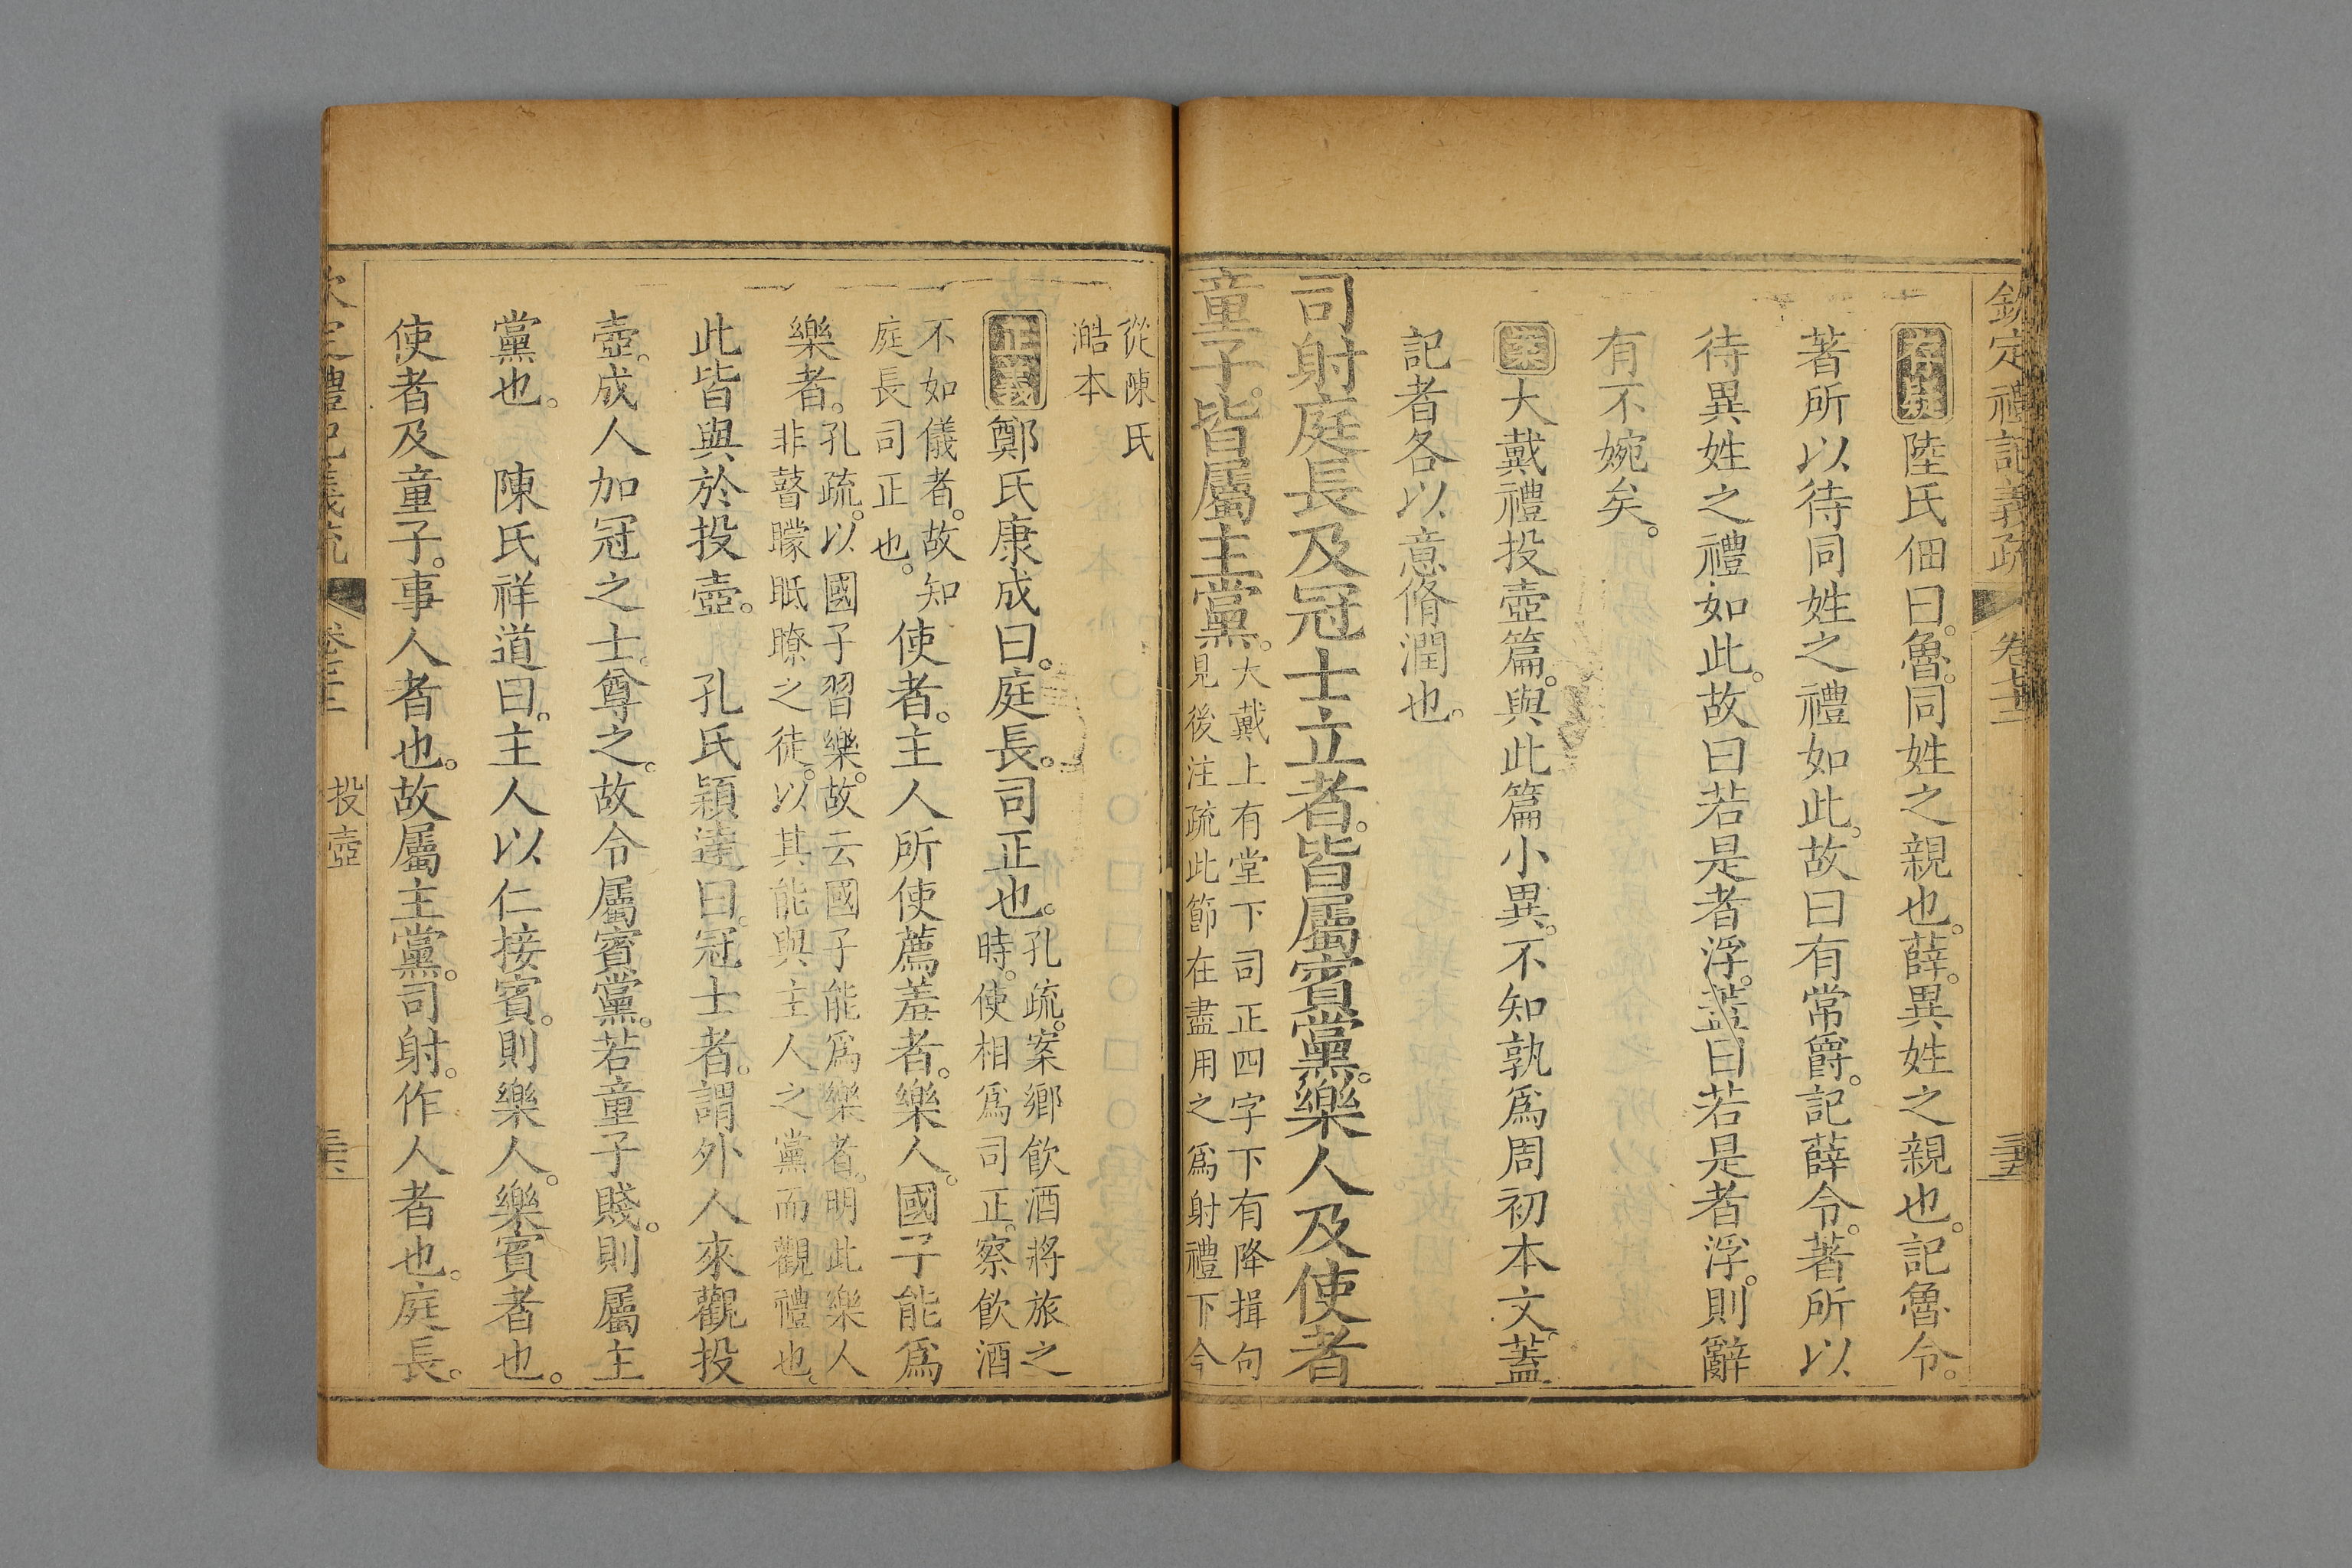 欽定禮記義疏 卷七十三 三五
存異 陸氏佃曰。魯。同姓之親也。薛。異姓之親也。記魯令。
著所以待同姓之禮如此。故曰有常爵。記薛令。著所以
待異姓之禮如此。故曰若是者浮。蓋曰若是者浮。則辭
有不婉矣。
案 大戴禮投壺篇。與此篇小異。不知孰爲周初本文。蓋
記者各以意脩潤也。
司射庭長及冠士立者。皆屬賓黨。樂人及使者
童子。皆屬主黨。
大戴上有堂下司正四字下有降揖句
見後注疏此節在盡用之爲射禮下今
從陳氏
澔本
正義 鄭氏康成曰。庭長。司正也。
孔疏。案鄉飲酒將旅之
時。使相爲司正。察飲酒
不如儀者。故知
庭長司正也。
使者。主人所使薦羞者。樂人。國子能爲
樂者。
孔疏。以國子習樂。故云國子能爲樂者。明此樂人
非瞽矇眡瞭之徒。以其能與主人之黨而觀禮也。
此皆與於投壺。 孔氏穎達曰。冠士者。謂外人來觀投
壺。成人加冠之士。尊之。故令屬賓黨。若童子賤。則屬主
黨也。 陳氏祥道曰。主人以仁接賓。則樂人。樂賓者也。
使者及童子。事人者也。故屬主黨。司射。作人者也。庭長。
禮記義疏 投壺